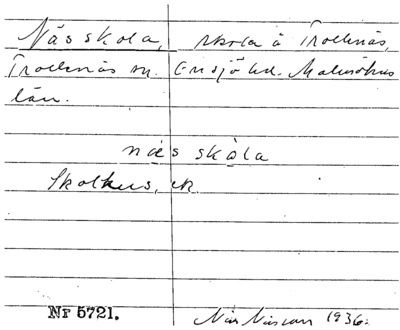 Näs skola, skola å Trollenäs,
Trollenäs sn. Onsjö hd. Malmöhus
län.
næs skåla
Skolhus, ek.
Nr 5721.
Nils Nilsson 1936.